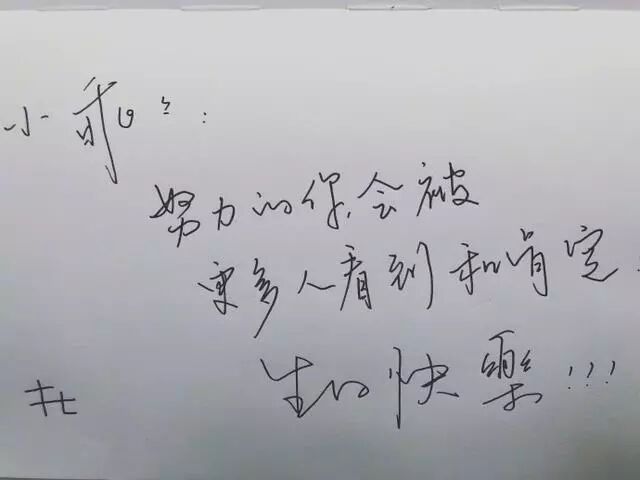 小乖:
努力的你,会被
更多人看到和肯定.
生日快樂!!!